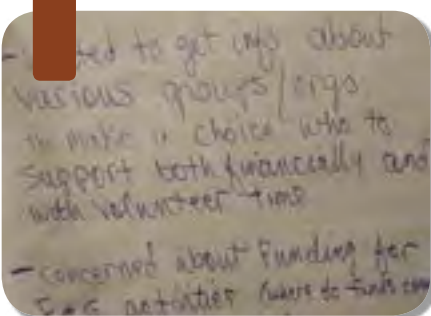 - to get info about
various groups/orgs
to make a choice who to
support both financially and
with volunteer time
- concerned about Funding for
activities (where do funds